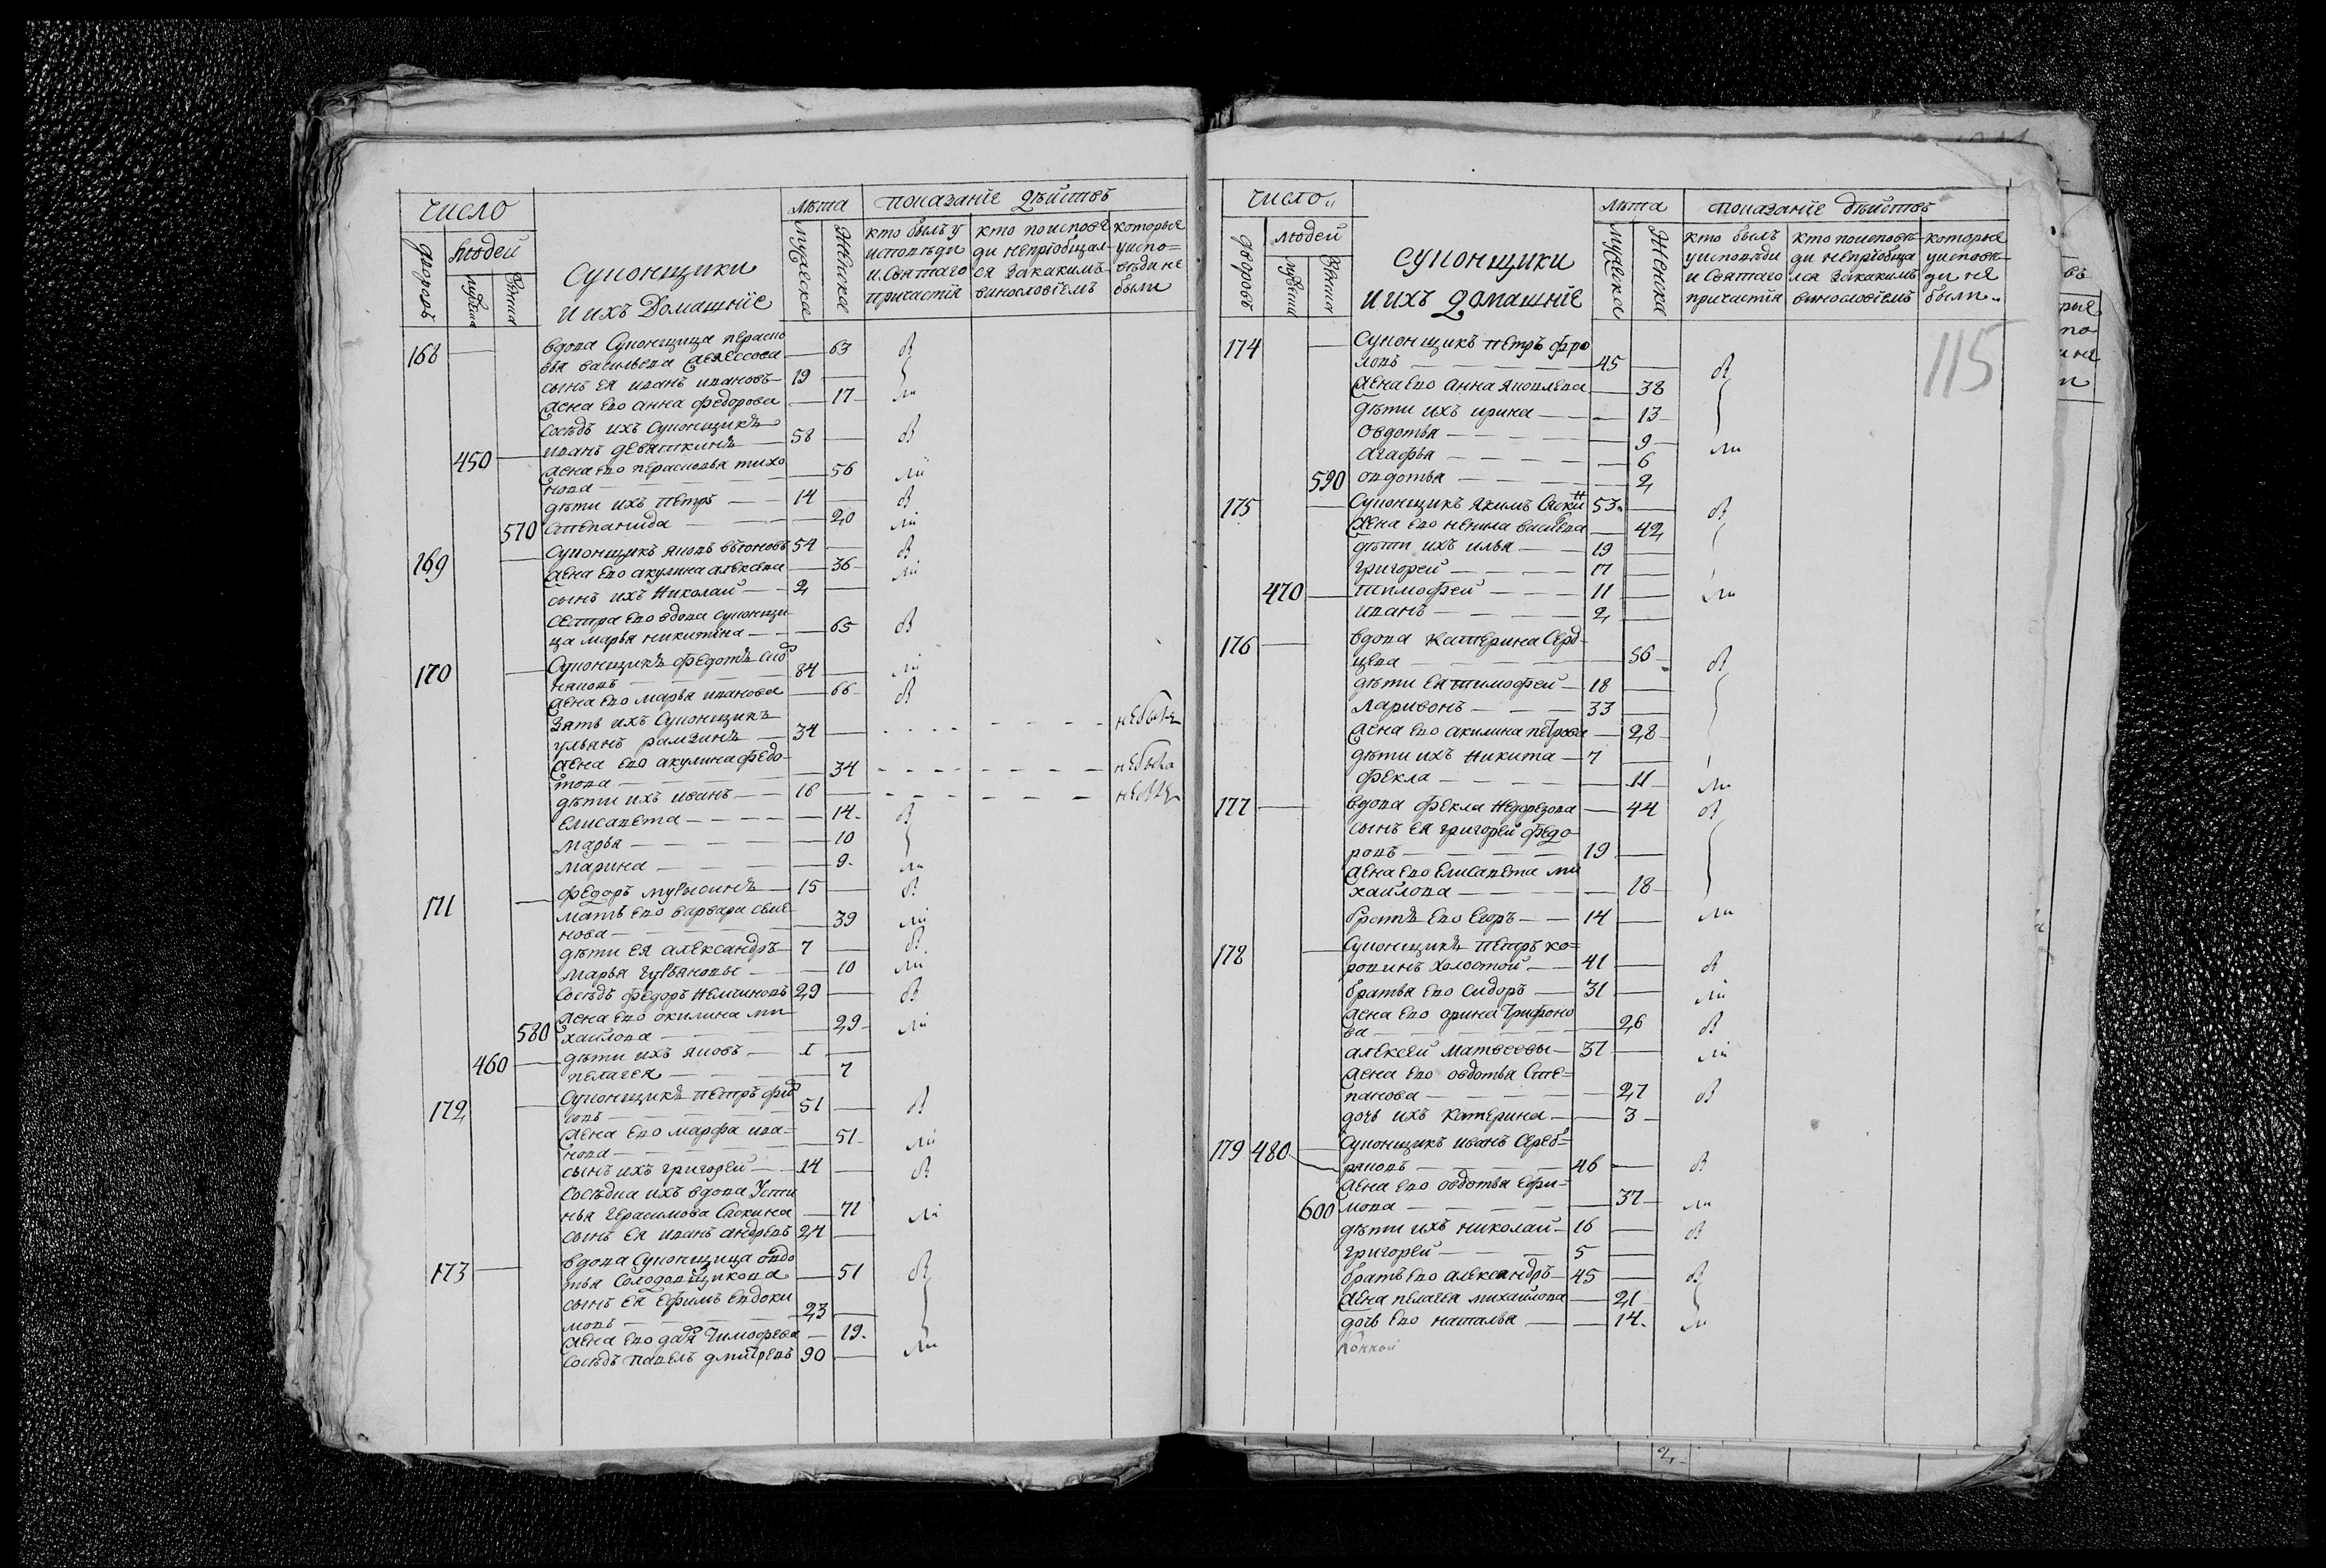 число
лѣта показанiе дѣйствъ
дворовъ
людей
мужска
женска
Суконщики
и ихъ Домашнiе
мужеска
женска
кто былъ у исповѣди и Святаго причастiя
кто поисповеди непрiобщался закакимъ винословiемъ
которые уисповѣди не были
168 вдова Суконщица
васильева 63 в
сынъ ея иванъ ивановъ 19
жена ево анна федорова 17 ли
Сосѣдъ ихъ Суконщикъ
иванъ девяткинъ 58 в
450
жена ево парасковья тихо
нова 56 ли
дѣти ихъ петръ 14 в
570 Степанида 20 ли
169 Суконщикъ яковъ вьюновъ 54 в
жена ево акулина алексева 36 ли
сынъ ихъ николай 2
сестра ево вдова суконщи
ца марья никитина 65 в
170 Суконщикъ федотъ
84 ли
жена ево марья иванова 66 в
зять ихъ Суконщикъ
ульянъ рамзинъ 34 небылъ
жена ево акулина федо
това 34 небыла
дѣти ихъ иванъ 16 небылъ
елисавета 14 в
марья 10
марина 9 ли
171 федоръ 15 в
мать ево варвара семе
нова 39 ли
дѣти ея александръ 7 в
марья 10 ли
Сосѣдъ федоръ немчиновъ 29 в
жена ево окилина ми
580 хайлова 29 ли
460 дѣти ихъ яковъ 1
пелагея 7
172 Суконщикъ петръ
51 в
жена ево марфа ива
нова 51 ли
сынъ ихъ григорей 14 в
Сосѣдка ихъ вдова Усти
нья герасимова Сяскина 71 ли
сынъ ея иванъ андревъ 24
173 вдова Суконщица овдо
тья Солодовщикова 51 в
сынъ ея ефимъ евдоки
мовъ 23
жена ево дарья тимофева 19
Сосѣдъ павелъ дмитревъ 90 ли
число
лѣта показанiе дѣйствъ
дворовъ
людей
мужска
женска
суконщики
и ихъ домашнiе
мужеска
женска
кто былъ уисповѣди и Святаго причастiя
кто поисповѣди непрiобщался закакимъ винословiемъ
которые уисповѣди не были
115
174 Суконщикъ петръ фро
ловъ 45 в
жена ево анна яковлева 38
дѣти ихъ ирина 13
Овдотья 9 ли
агафья 6
590 овдотья 2
175 Суконщикъ якимъ Сяскинъ 53 в
жена ево ненила васильева 42
дѣти ихъ илья 19
григорей 17
470 тимофей 11 ли
иванъ 2
176 вдова катерина
56 в
дѣти ея тимофей 18
ларивонъ 33
жена ево акилина петрова 28
дѣти ихъ никита 7
фекла 11 ли
177 вдова фекла 44 в
сынъ ея григорей федо
ровъ 19
жена ево елисавета ми
хайлова 18
братъ ево егоръ 14 ли
178 Суконщикъ петръ ко
ровинъ холостой 41 в
братья ево сидоръ 31 ли
жена ево орина трифоно
ва 26 в
алексей матвеевы 37 ли
жена ево овдотья Сте
панова 27 в
дочь ихъ катерина 3
179 480 Суконщикъ иванъ Сереб
ряковъ 46 в
жена ево овдотья ефи
600 мова 37 ли
дѣти ихъ николай 16 в
григорей 5
братъ ево александръ 45 в
жена пелагея михайлова 21
дочь ево наталья 14 ли
2